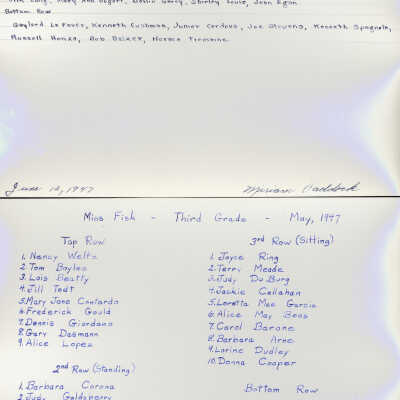 Jim Long, Mary Ann Bogart, Garcy, Shirley Louis, Joan Egan
Bottom Row
Gaylord La Fever, Kenneth Cushman, Junior Cordova, Joe Stevens, Kenneth Spagnola,
Russell Honza, Bob Belzer, Horace
June 10, 1947 Miriam Paddock
Miss Fish - Third Grade - May, 1947
Top Row
1. Nancy Weltz
2. Tom Boyles
3. Lois Beatty
4. Jill Tedt
5. Mary Jane Contardo
6. Frederick Gould
7. Dennis Giordano
8. Gary Dagmann
9. Alice Lopez
2nd Row (Standing)
1. Barbara Corona
2. Judy Goldsberry
3rd Row (Sitting)
1. Joyce Ring
2. Terry Meade
3. Judy Du Burg
4. Jackie Callahan
5. Loretta Mae Garcia
6. Alice May Beas
7. Carol Barone
8. Barbara Arne
9. Lorine Dudley
10. Donna Cooper
Bottom Row